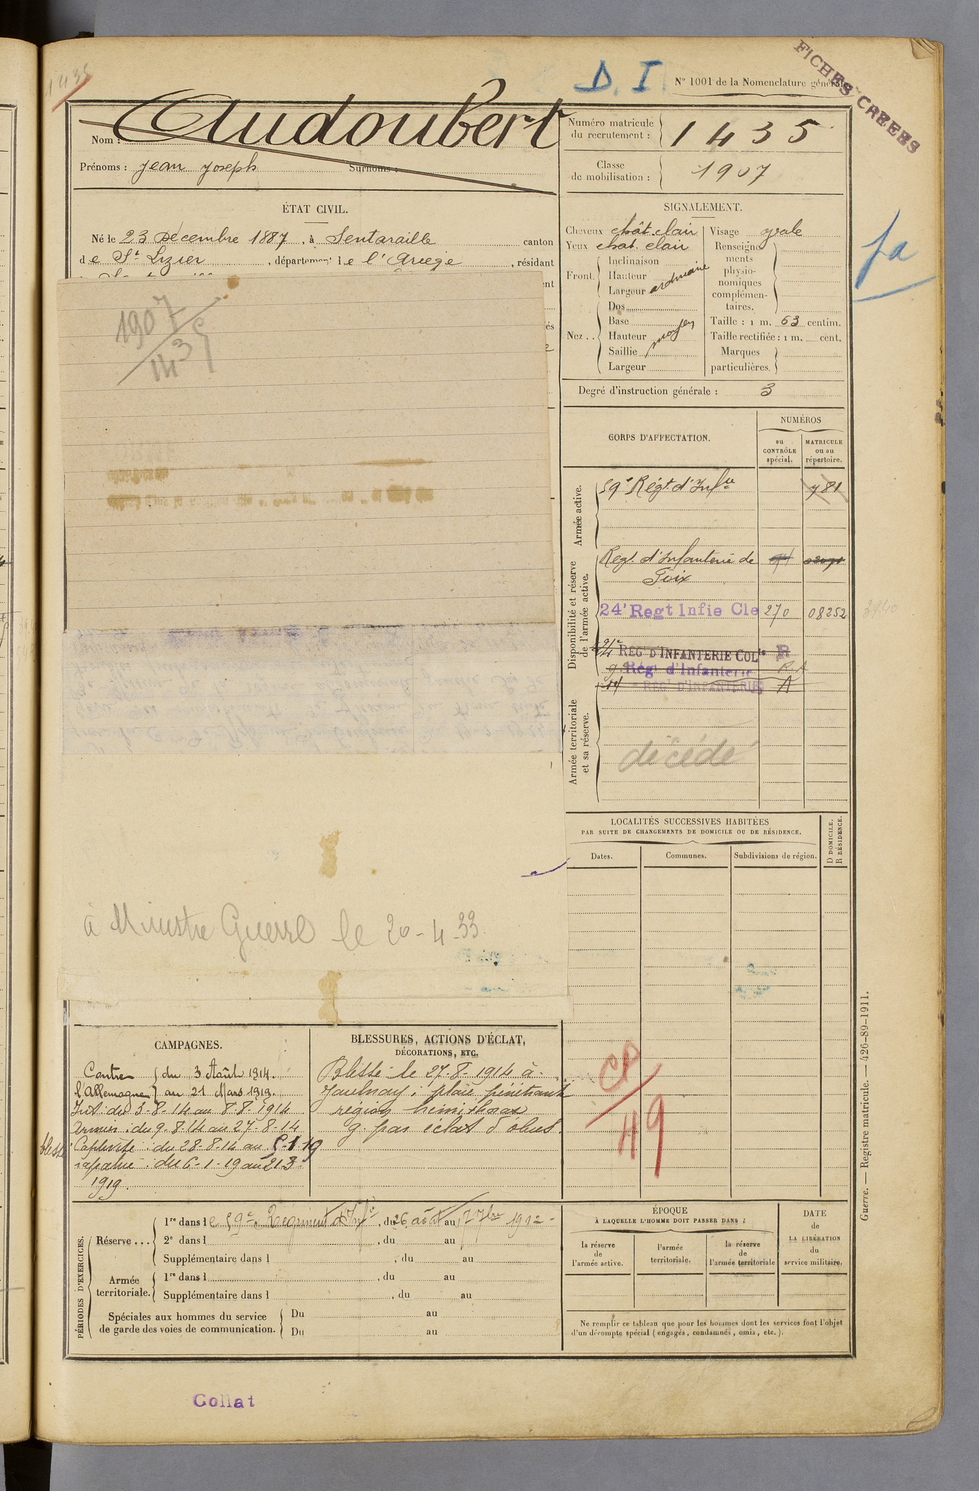 1435
D. I.
N° 1001 de la Nomenclature générale
FICHES CREEES
Nom : Audoubert
Prénoms : Jean Joseph Surnoms :
Numéro matricule du recrutement : 1435
Classe de mobilisation : 1907
ÉTAT CIVIL.
Né le 23 Décembre 1887, à Sentaraille canton
de St Lizier, département de l'Ariege, résidant
SIGNALEMENT.
Cheveux chât. clair
Yeux chat. clair
Front. Inclinaison
Hauteur
Largeur
Nez.. Dos
Base
Hauteur
Saillie
Largeur
moyen
Visage ovale
Renseignements physionomiques complémentaires.
Taille : 1 m. 63 centim.
Taille rectifiée : 1 m. cent.
Marques particulières.
Degré d'instruction générale : 3
fa
1907
1435
CORPS D'AFFECTATION.
NUMÉROS
au CONTRÔLE spécial.
MATRICULE ou au répertoire.
Armée active.
59e Régt d'Infie 781
Disponibilité et réserve de l'armée active.
Regt d'Infanterie de Foix
24e Regt Infie Cle 270 08252
REG. D'INFANTERIE COLle R
Rég. d'Infanterie
REG. D'INFANTERIE A
Armée territoriale et sa réserve.
décédé
LOCALITÉS SUCCESSIVES HABITÉES
PAR SUITE DE CHANGEMENTS DE DOMICILE OU DE RÉSIDENCE.
Dates.
Communes.
Subdivisions de région.
D DOMICILE.
R RÉSIDENCE.
à Ministre Guerre le 20-4-33
CAMPAGNES.
Contre l'Allemagne du 3 Août 1914.
au 21 Mars 1919.
Int. du 3-8-14 au 8-8-1914
Armées : du 9-8-14 au 27-8-14
blessé Captivité : du 28-8-14 au 5-1-19
rapatrié : du 6-1-19 au 21-3-
1919.
BLESSURES, ACTIONS D'ÉCLAT,
DÉCORATIONS, ETC.
Blessé le 27-8-1914 à
Jaulnay, plaie pénétrante
région hémithorax
g. par éclat d'obus.
CP
49
PÉRIODES D'EXERCICES.
Réserve ... 1re dans le 59e Régiment d'Infie, du 26 août au 17 7bre 1912
2e dans l , du au
Supplémentaire dans l , du au
Armée territoriale. 1re dans l , du au
Supplémentaire dans l , du au
Spéciales aux hommes du service de garde des voies de communication. Du au
Du au
ÉPOQUE
À LAQUELLE L'HOMME DOIT PASSER DANS :
la réserve de l'armée active.
l'armée territoriale.
la réserve de l'armée territoriale
DATE de LA LIBÉRATION du service militaire.
Ne remplir ce tableau que pour les hommes dont les services font l'objet
d'un décompte spécial (engagés, condamnés, omis, etc.).
Guerre. — Registre matricule. — 426-89-1911.
Collat